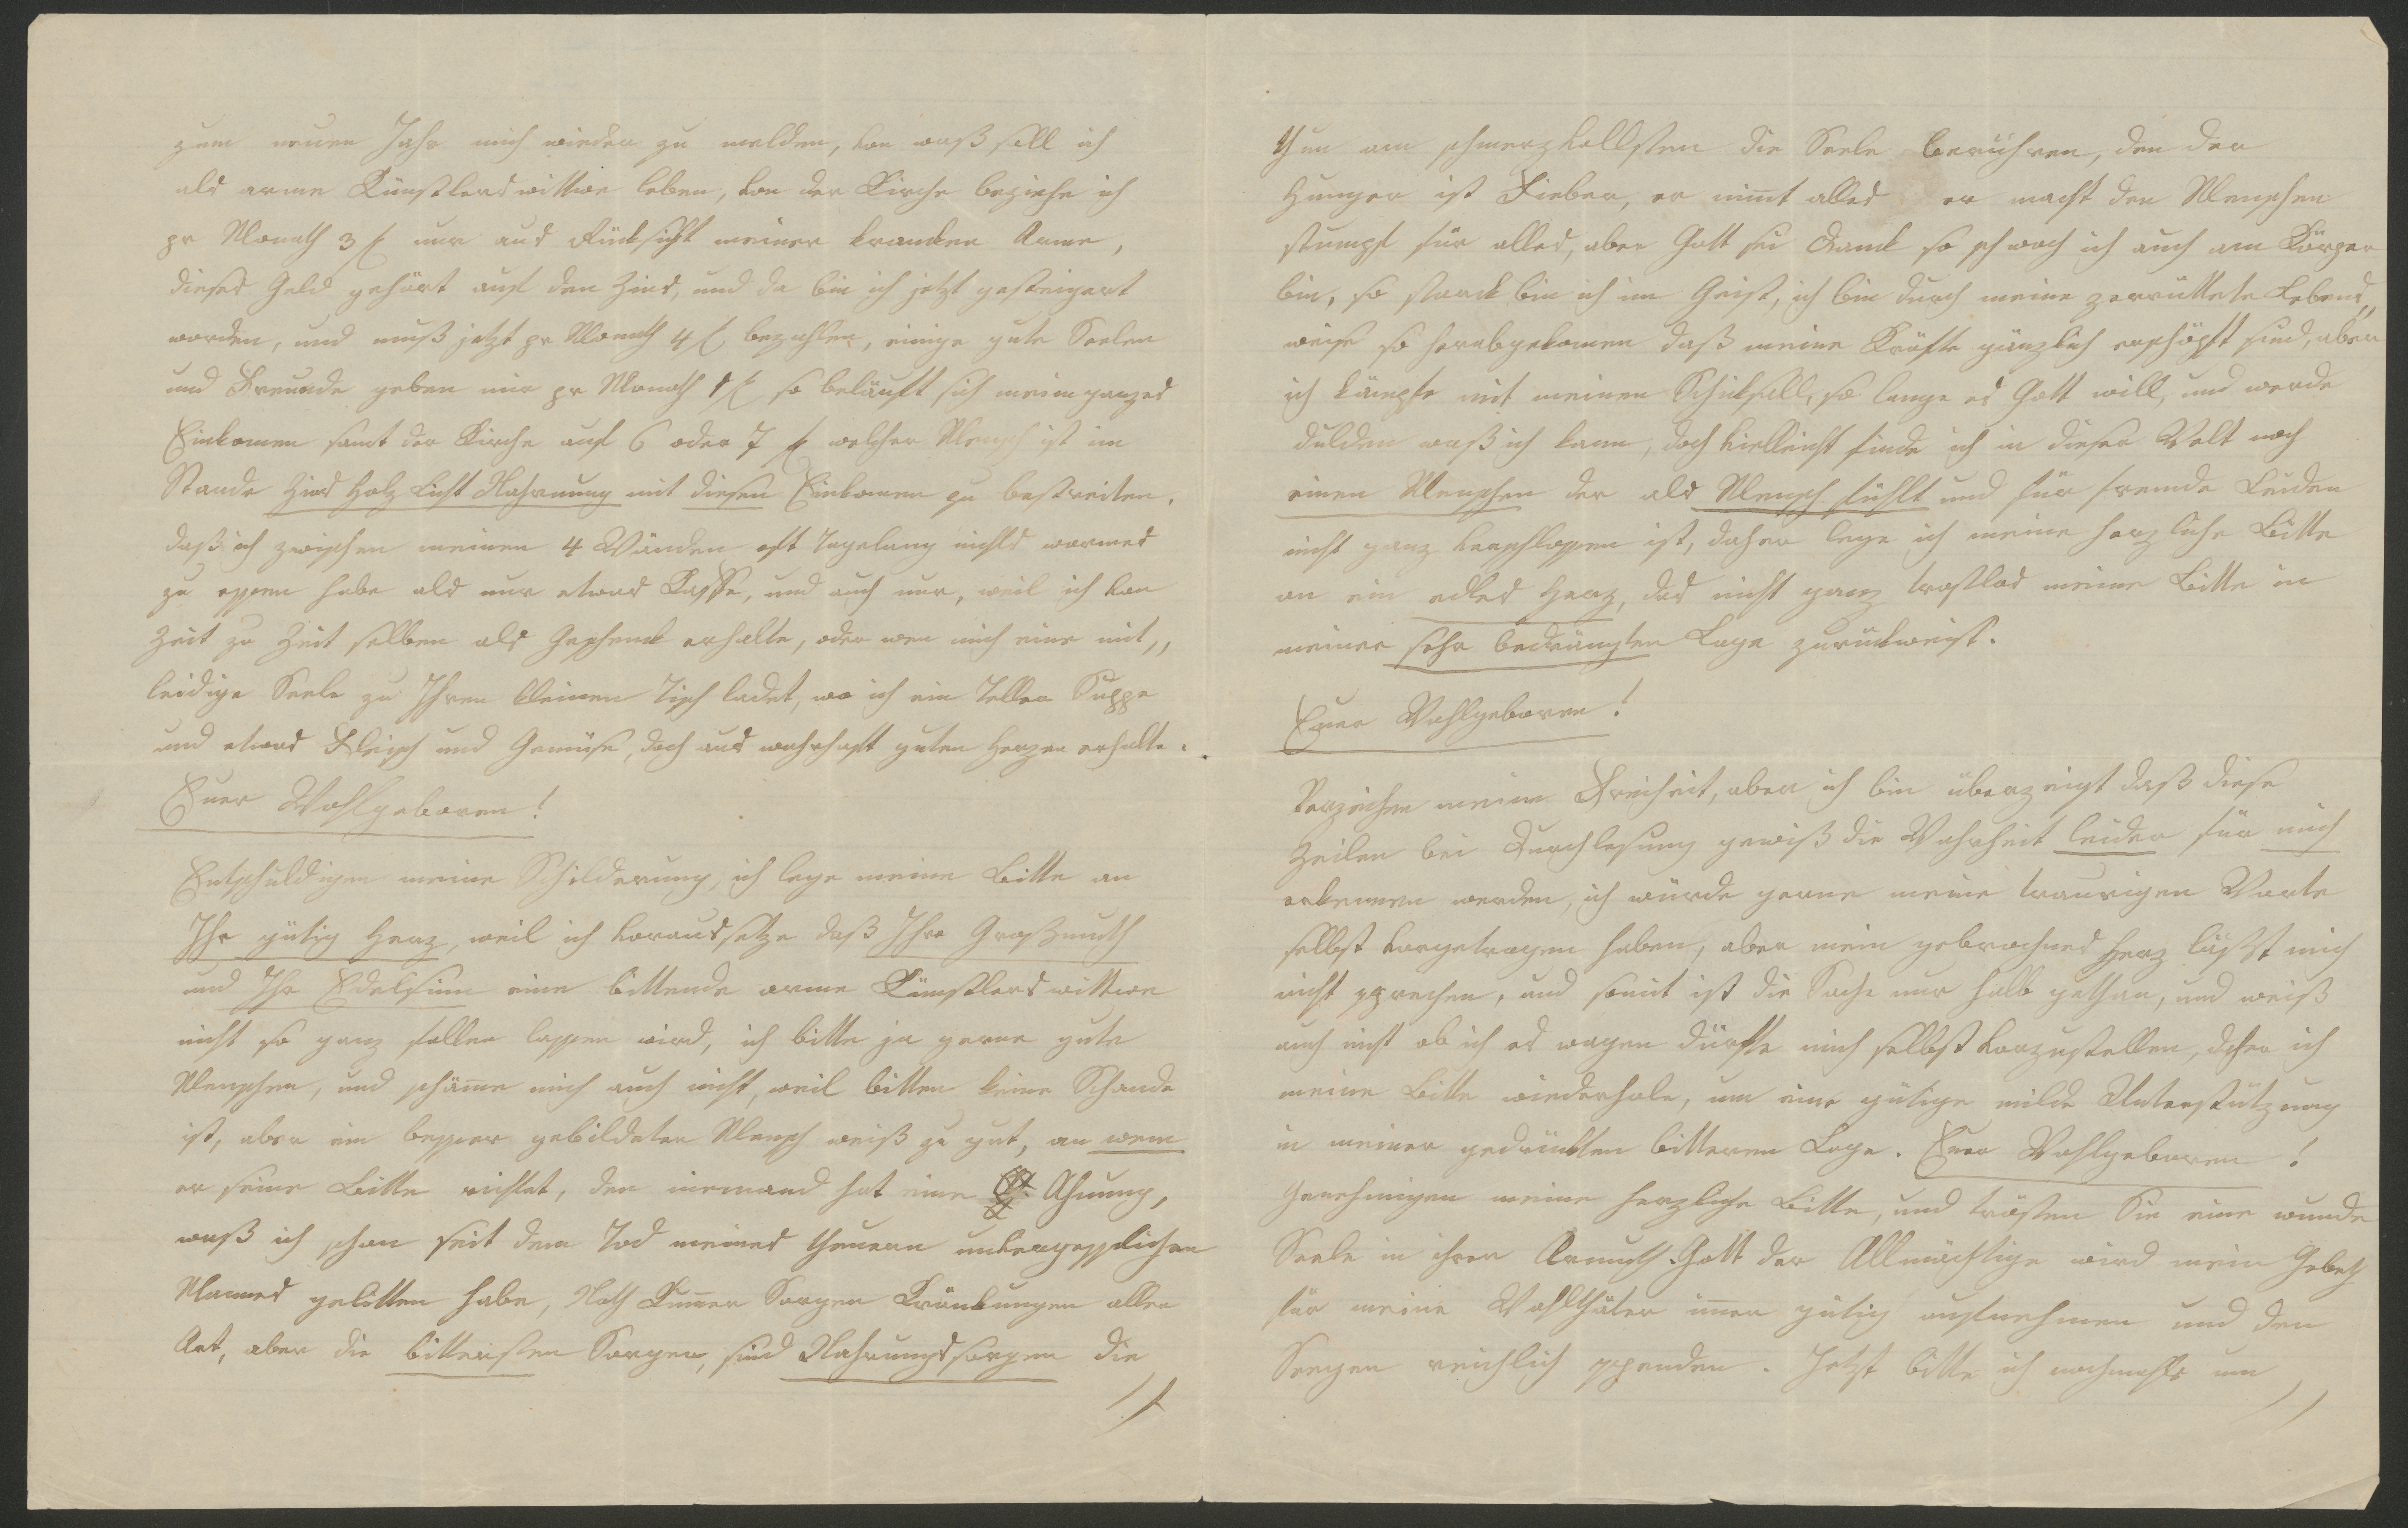 zum neuen Jahr mich wieder zu melden, von waß soll ich
als arme Künstlerswittwe leben, von der Kirche beziehe ich
pr Monath 3 f nur aus Rücksicht meiner kranken Arme,
dieses Geld gehört auf den Zins, und da bin ich jetzt gesteigert
worden, und muß jetzt pr Monath 4 f bezahlen, einige gute Seelen
und Freunde geben mir pr Monath 1 f so beläuft sich mein ganzes
Einkomen samt der Kirche auf 6 oder 7 f welcher Mensch ist im
Stande Zins Holz Licht Nahrung mit diesen Einkomen zu bestreiten.
daß ich zwischen meinen 4 Wänden oft Tagelang nichts warmes
zu essen habe als nur etwas Kaffe, und auch nur, weil ich von
Zeit zu Zeit selben als Geschenk erhalte, oder wen mich eine mit„
leidige Seele zu Ihren kleinen Tisch ladet, wo ich ein Teller Suppe
und etwas Fleisch und Gemüse, doch aus wahrhaft guten Herzen erhalte.
Euer Wohlgeboren!
Entschuldigen meine Schilderung, ich lege meine Bitte an
Ihr gütig Herz, weil ich voraussetze daß Ihre Großmuth
und Ihr Edelsinn eine bittende arme Künstlerswittwe
nicht so ganz fallen lassen wird, ich bitte ja gerne gute
Menschen, und schäme mich auch nicht, weil bitten keine Schande
ist, aber ein besser gebildeter Mensch weiß zu gut, an wem
er seine Bitte richtet, den niemand hat eine Ahnung,
waß ich schon seit dem Tod meines theuern unvergesslichen
Mannes gelitten habe, Noth Kumer Sorgen Kränkungen aller
Art, aber die bittersten Sorgen, sind Nahrungssorgen die
Nun am schmerzvollsten die Seele berühren, den der
Hunger ist Fieber, er nimt alles er macht den Menschen
stumpf für alles, aber Gott sei Dank so schwach ich auch am Körper
bin, so stark bin ich im Geist, ich bin durch meine zerrüttete Lebens„
weise so herabgekomen daß meine Kräfte gänzlich erschöpft sind, aber
ich kämpfe mit meinen Schicksall, so lange es Gott will, und werde
dulden waß ich kann, doch vielleicht finde ich in dieser Welt noch
einen Menschen der als Mensch fühlt und für fremde Leiden
nicht ganz verschlossen ist, daher lege ich meine herzliche Bitte
an ein edles Herz, das nicht ganz trostlos meine Bitte in
meiner sehr bedrängten Lage zurückweist.
Euer Wohlgeboren!
Verzeihen meine Freiheit, aber ich bin überzeigt daß diese
Zeilen bei Durchlesung gewiß die Wahrheit leider für mich
erkennen werden, ich würde gerne meine traurigen Worte
selbst vorgetragen haben, aber mein gebrochnes Herz läßt mich
nicht sprechen, und somit ist die Sache nur halb gethan, und weiß
auch nicht ob ich es wagen dürfte mich selbst vorzustellen, daher ich
meine Bitte wiederhole, um eine gütige milde Unterstützung
in meiner gedrückten bitteren Lage. Euer Wohlgeboren!
Genehmigen meine herzliche Bitte, und trösten Sie eine wunde
Seele in ihrer Armuth. Gott der Allmächtige wird mein Gebeth
für meine Wohlthäter imer gütig aufnehmen und den
Seegen reichlich spenden. Jetzt bitte ich nochmahls um